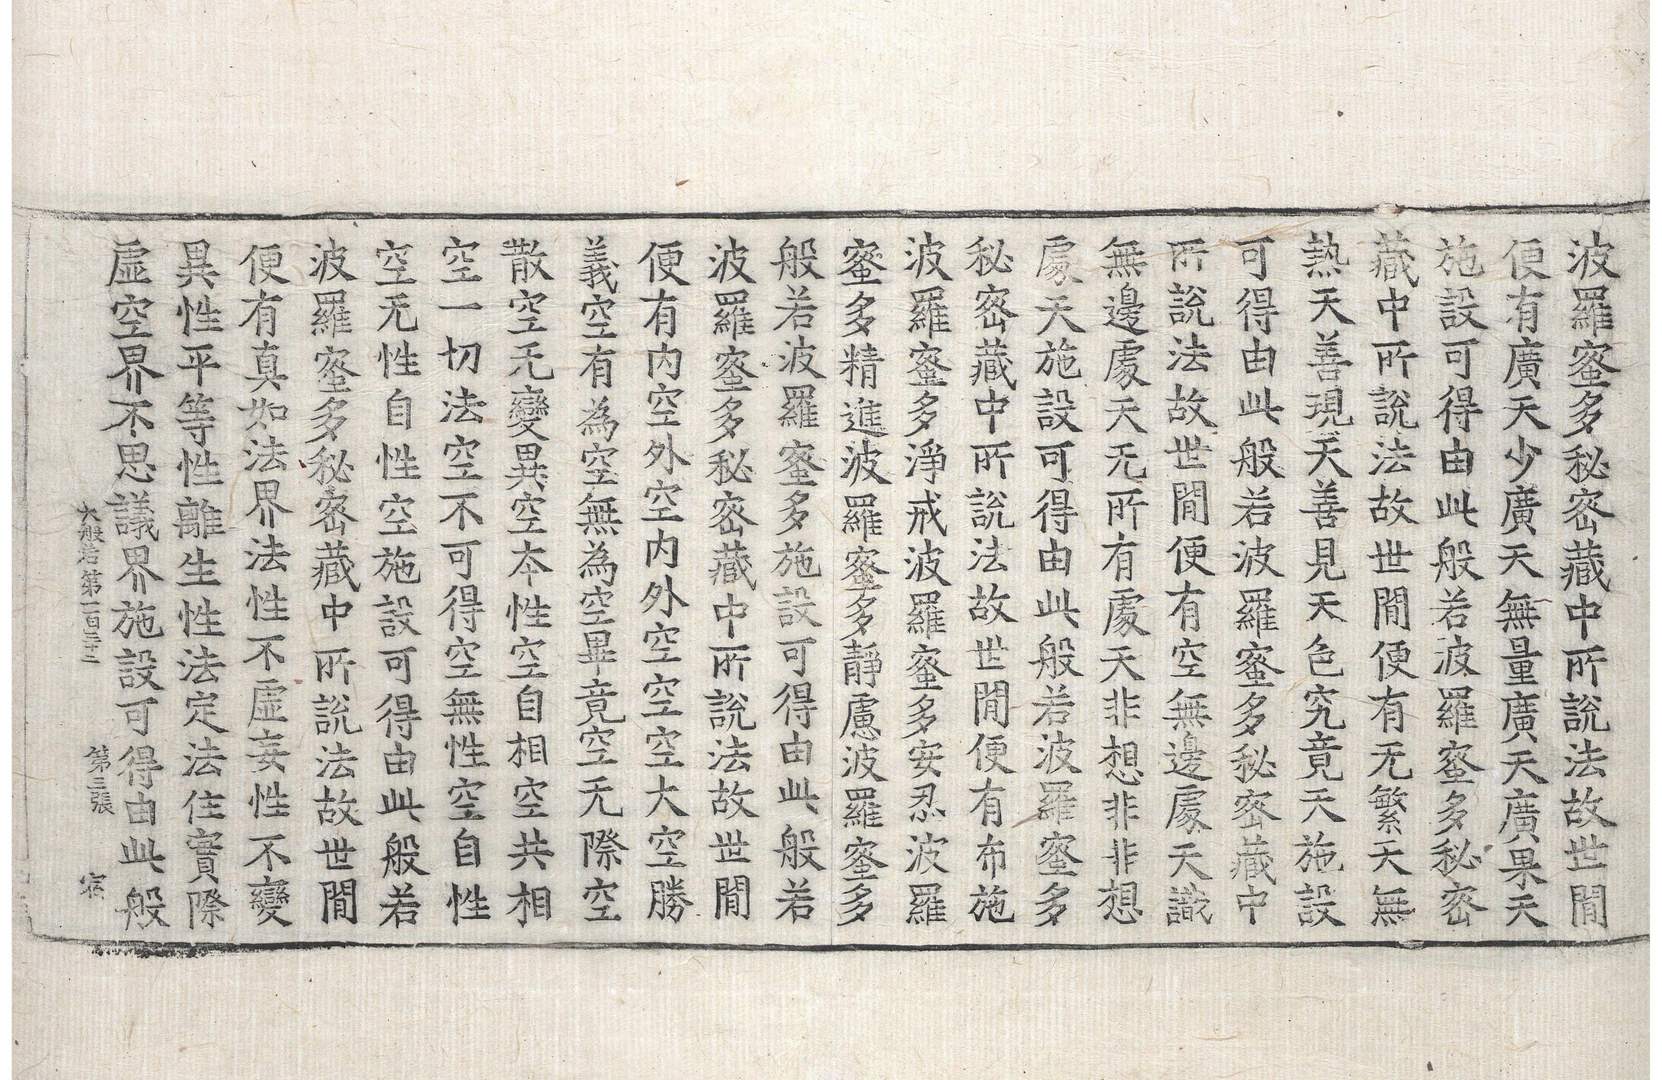 波羅蜜多秘密藏中所說法故世間
便有廣天少廣天無量廣天廣果天
施設可得由此般若波羅蜜多秘密
藏中所說法故世間便有无繁天無
熱天善現天善見天色究竟天施設
可得由此般若波羅蜜多秘密藏中
所說法故世間便有空無邊處天識
無邊處天无所有處天非想非非想
處天施設可得由此般若波羅蜜多
秘密藏中所說法故世間便有布施
波羅蜜多淨戒波羅蜜多安忍波羅
蜜多精進波羅蜜多靜慮波羅蜜多
般若波羅蜜多施設可得由此般若
波羅蜜多秘密藏中所說法故世間
便有內空外空內外空空空大空勝
義空有為空無為空畢竟空无際空
散空无變異空本性空自相空共相
空一切法空不可得空無性空自性
空无性自性空施設可得由此般若
波羅蜜多秘密藏中所說法故世間
便有真如法界法性不虛妄性不變
異性平等性離生性法定法住實際
虛空界不思議界施設可得由此般
大般若第一百三十二 第三張 宿